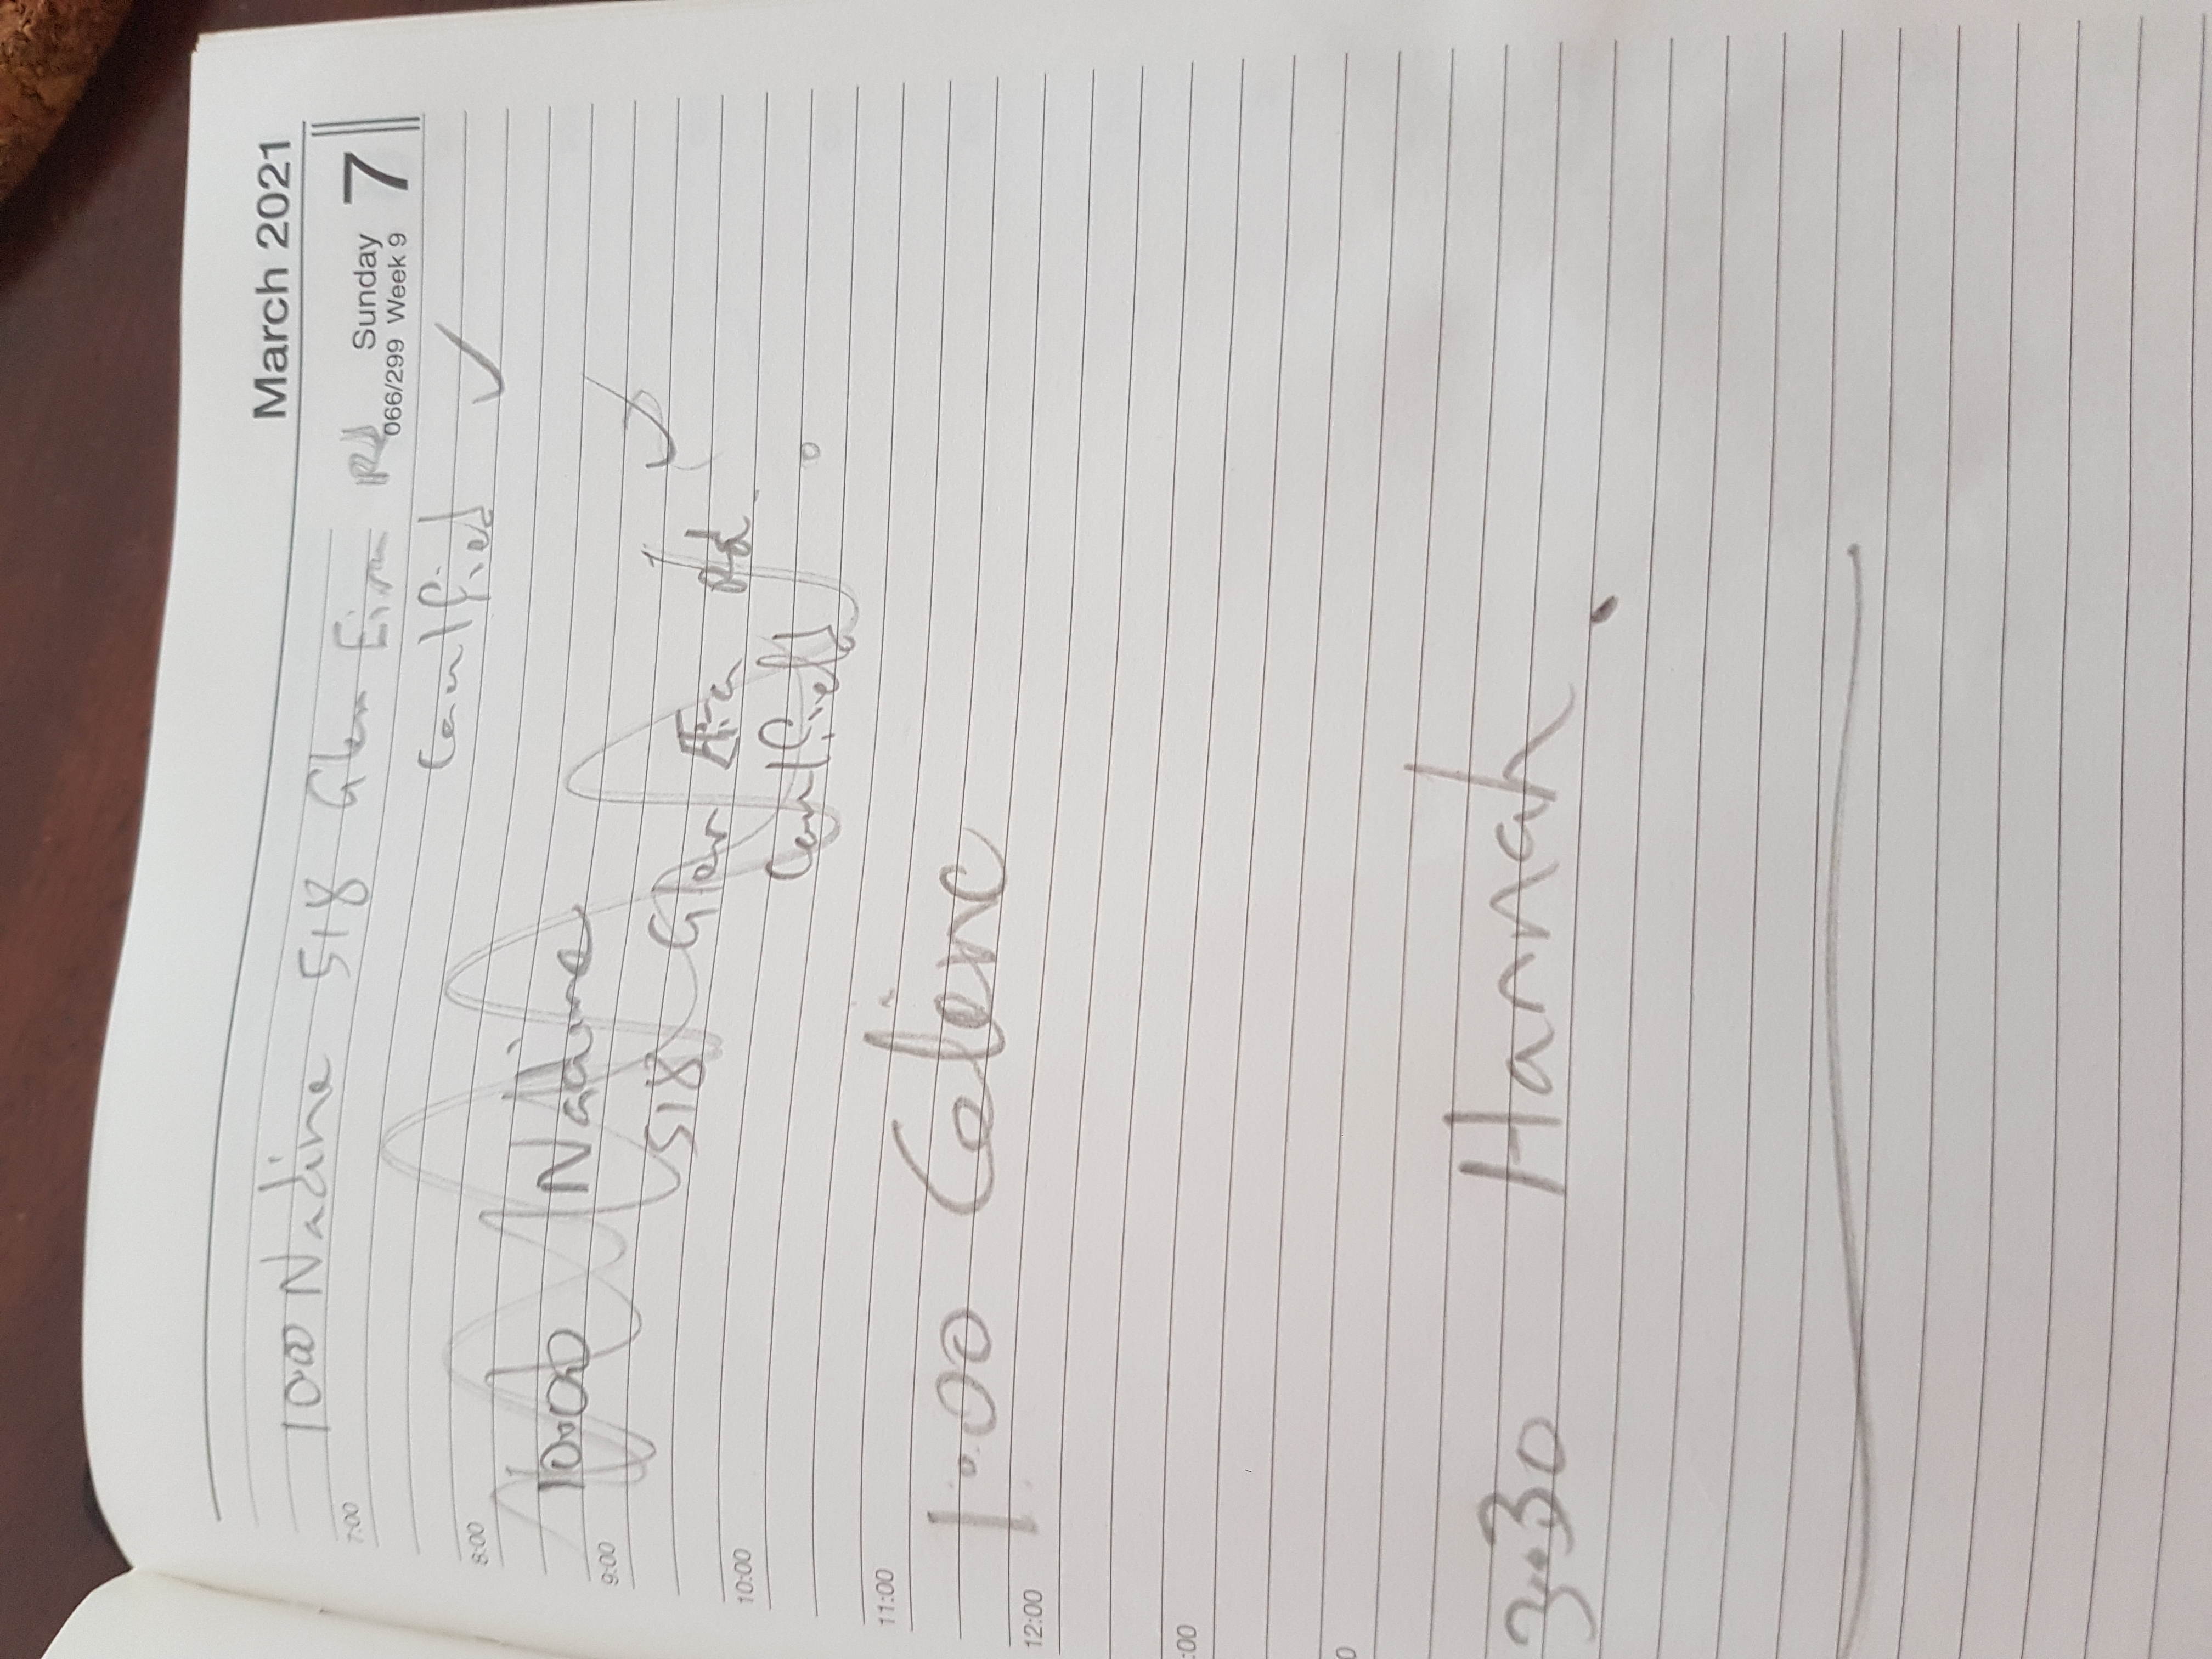 March 2021
Sunday 7
066/299 Week 9
1000 Nadine 518 Glen Eira Rd
Caulfield
7:00
8:00
10:00 Nadine
9:00
518 Glen Eira Rd.
10:00
Caulfield
11:00
1:00 Celine
12:00
:00
3:30 Hannah